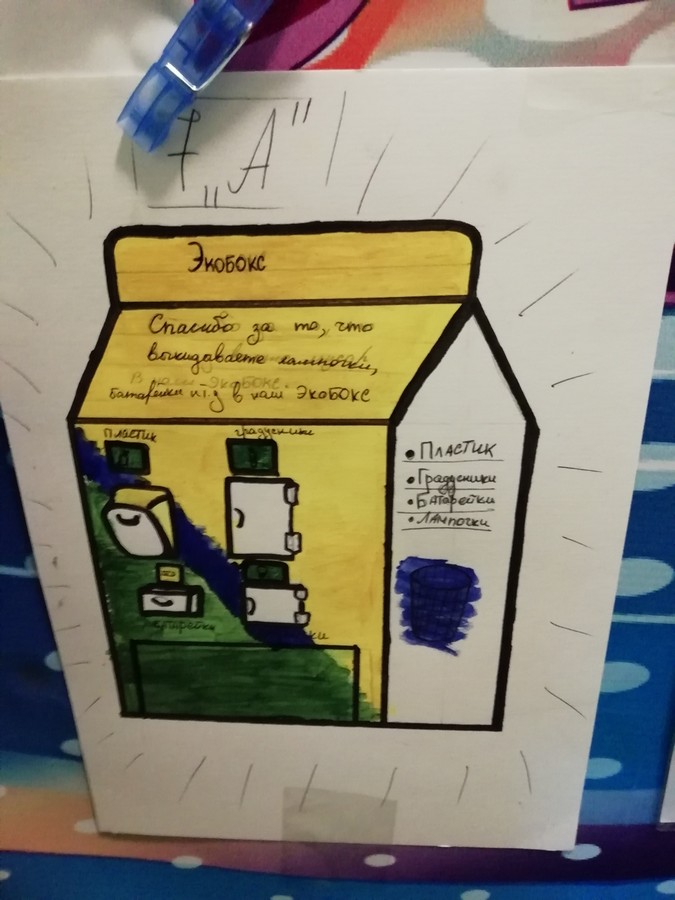 7 „А"
Экобокс
Спасибо за то, что
выкидываете лампочки,
батарейки и т.д в наш Экобокс
Пластик
градусники
• Пластик
• Градусники
• Батарейки
• Лампочки
батарейки